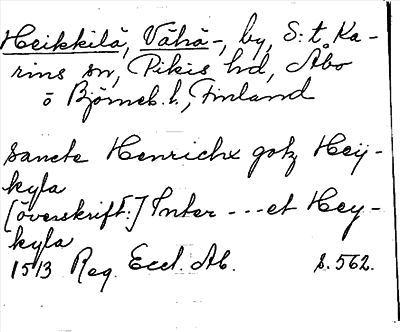 Heikkilä, Vähä-, by, S:t Ka-
rins sn, Pikis hd, Åbo
o Björneb. l., Finland
sancte Henrichx gotz Heij-
kyla
[överskrift:] Inter --- et Hey-
kyla
1513 Reg. Eccl. Ab. s. 562.